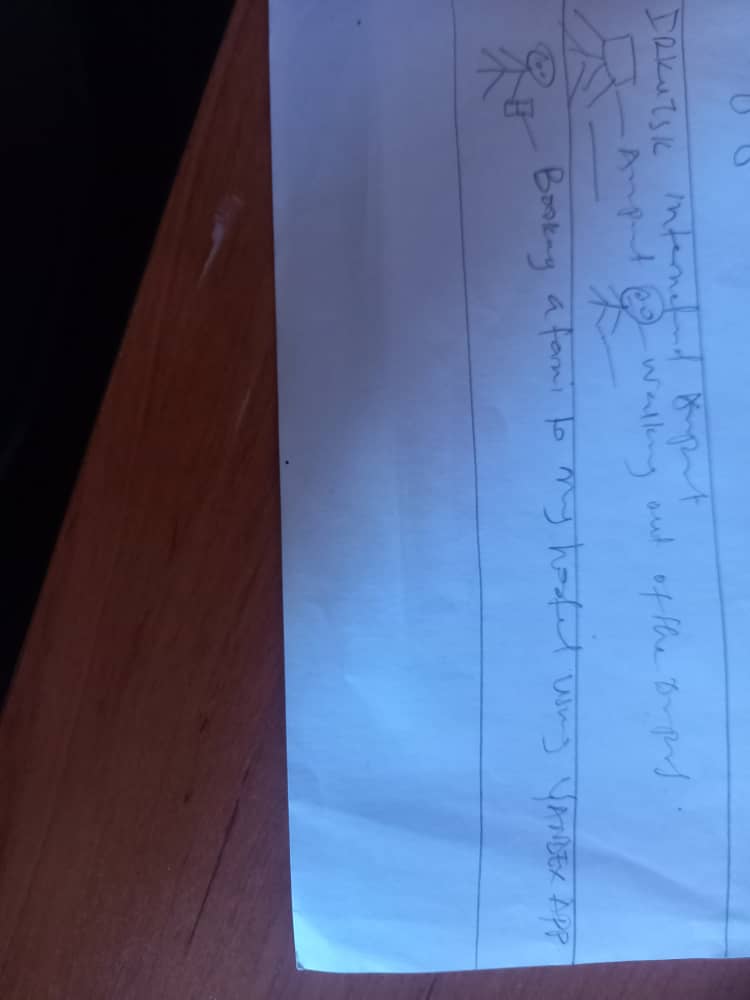 IRKUTSK International Airport
Airport walking out of the airport.
Booking a taxi to my hostel using YANDEX APP